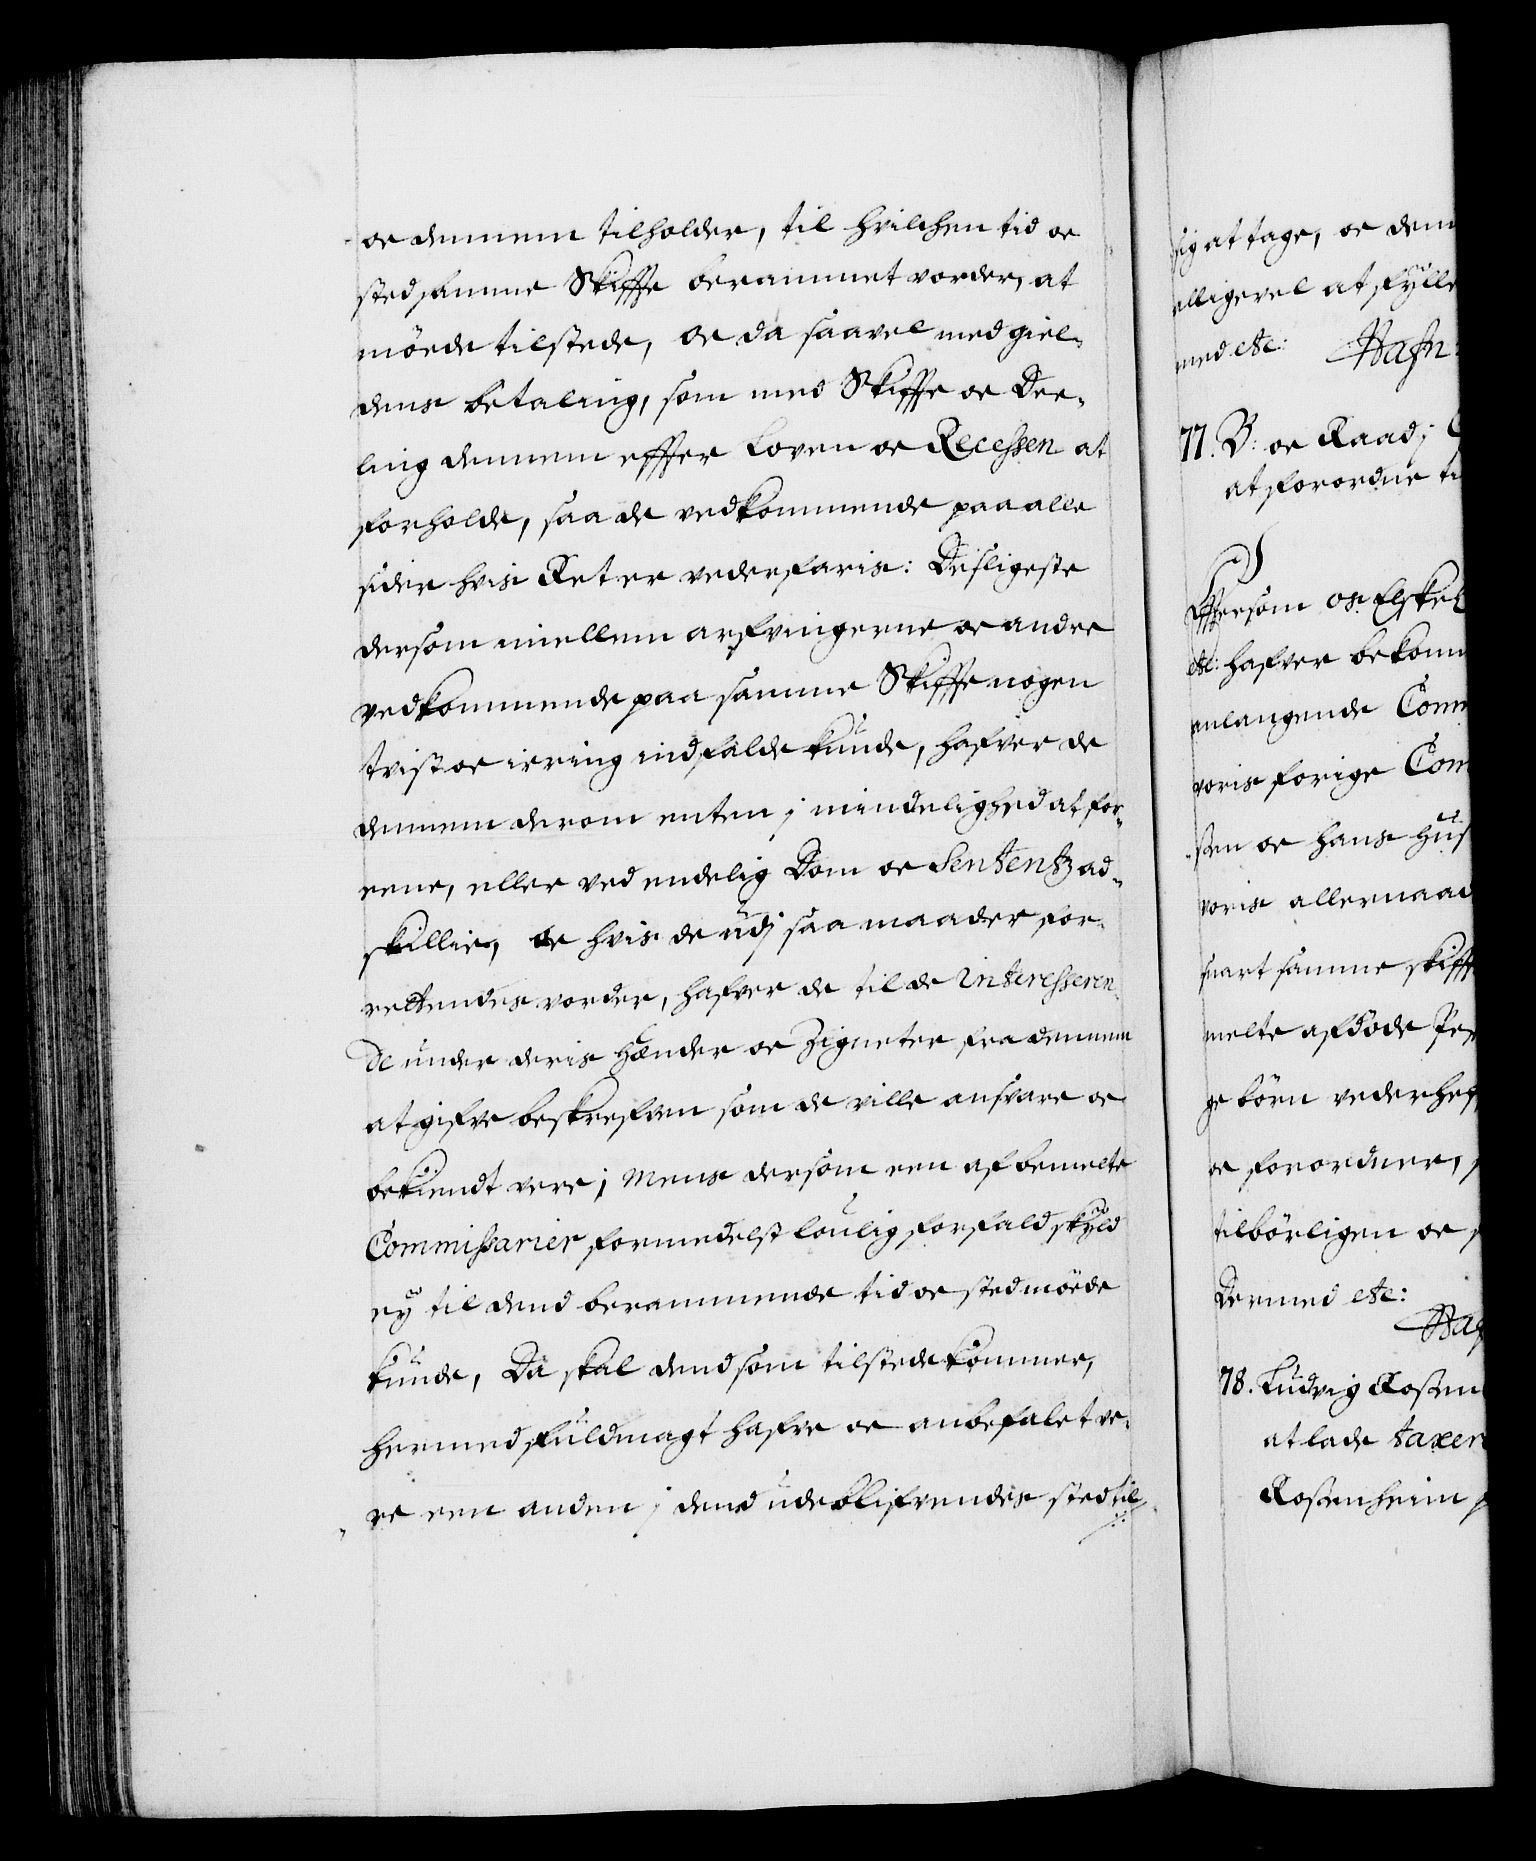 oc dennem tilholder, til hvilchen tid oc
sted samme Skiffte berammet vorder, at
möede tilstede, oc da saavel med giel-
dens betaling, som med Skiffte oc Dee-
ling dennem effter Loven oc Recessen at
forholde, saa de vedkommende paa alle
sider hvis Ret er vederfaris: Desligeste
dersom imellem arfvingerne oc andre
vedkommende paa samme Skiffte nogen
tvist oc irring indfalde kunde, hafver de
dennem derom enten j mindelighed at for-
eene, eller ved endelig Dom oc Sententz ad-
skillie, oc hvis de udj saa maader for-
rettendes vorder, hafver de til de interesseren-
de under deris Hænder oc Zigneter fra dennem
at gifve beskrefven som de ville ansvare oc
bekiendt vere; Mens dersom een af bemelte
Commissarier formedelst loulig forfald skyld
ey til dend berammende tid oc sted möede
kunde, Da skal dend som tilstede kommer,
hermed fuldmagt hafve oc anbefalet ve-
re een anden j dend udeblifvendes sted til
sig at tage, oc dem
alligevel at fylle
med etc: Hafn:
77. B: oc Raad j
at forordne ti
Effter som os Elskel
etc: hafver bekom
anlangende Com
voris forige Com
sen oc hans Hus
voris allernaad
snart samme skifft
melte afdöde
ge börn vederhef
oc forordner,
tilbörligen oc
Dermed etc:
Haf
78. Ludvig Rosen
at lade taxer
Rosenheim